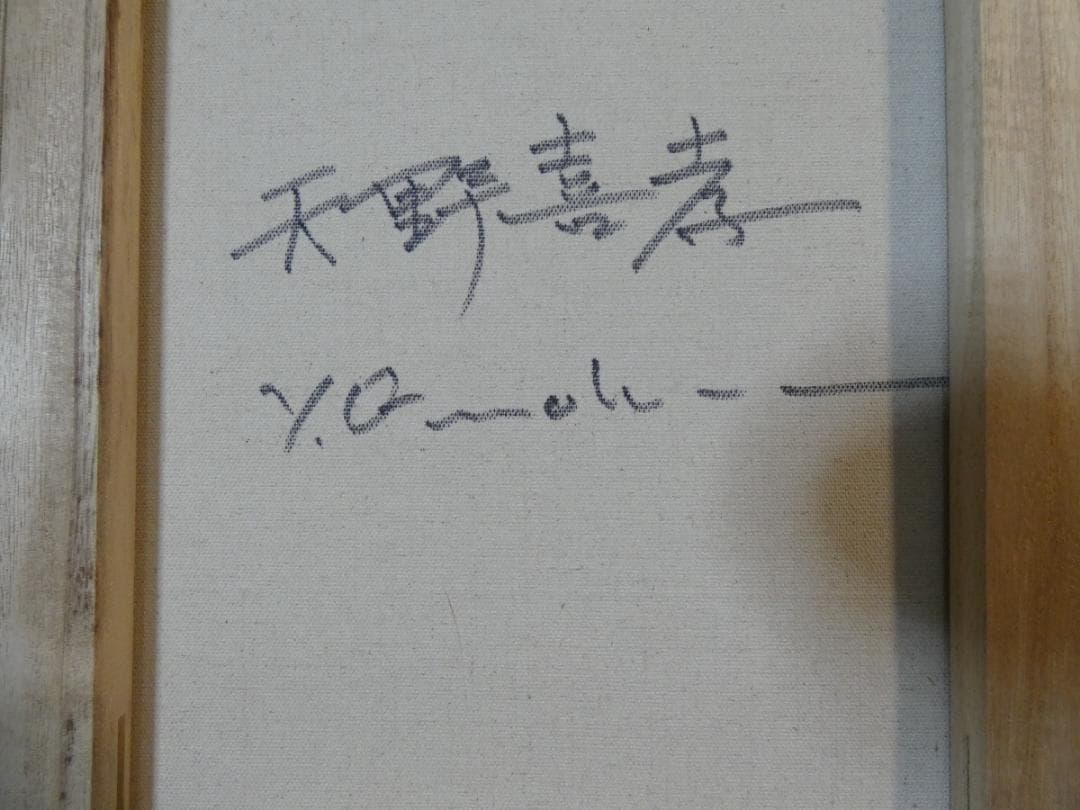 天野喜孝
Y.Amano